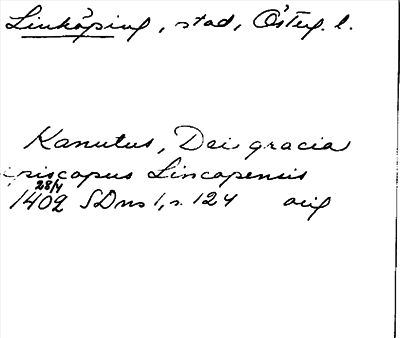 Linköping, stad, Österg. l.
Kanutus, Dei gracia
episcopus Lincopensis
28/4
1402 SDns 1, s. 124 orig